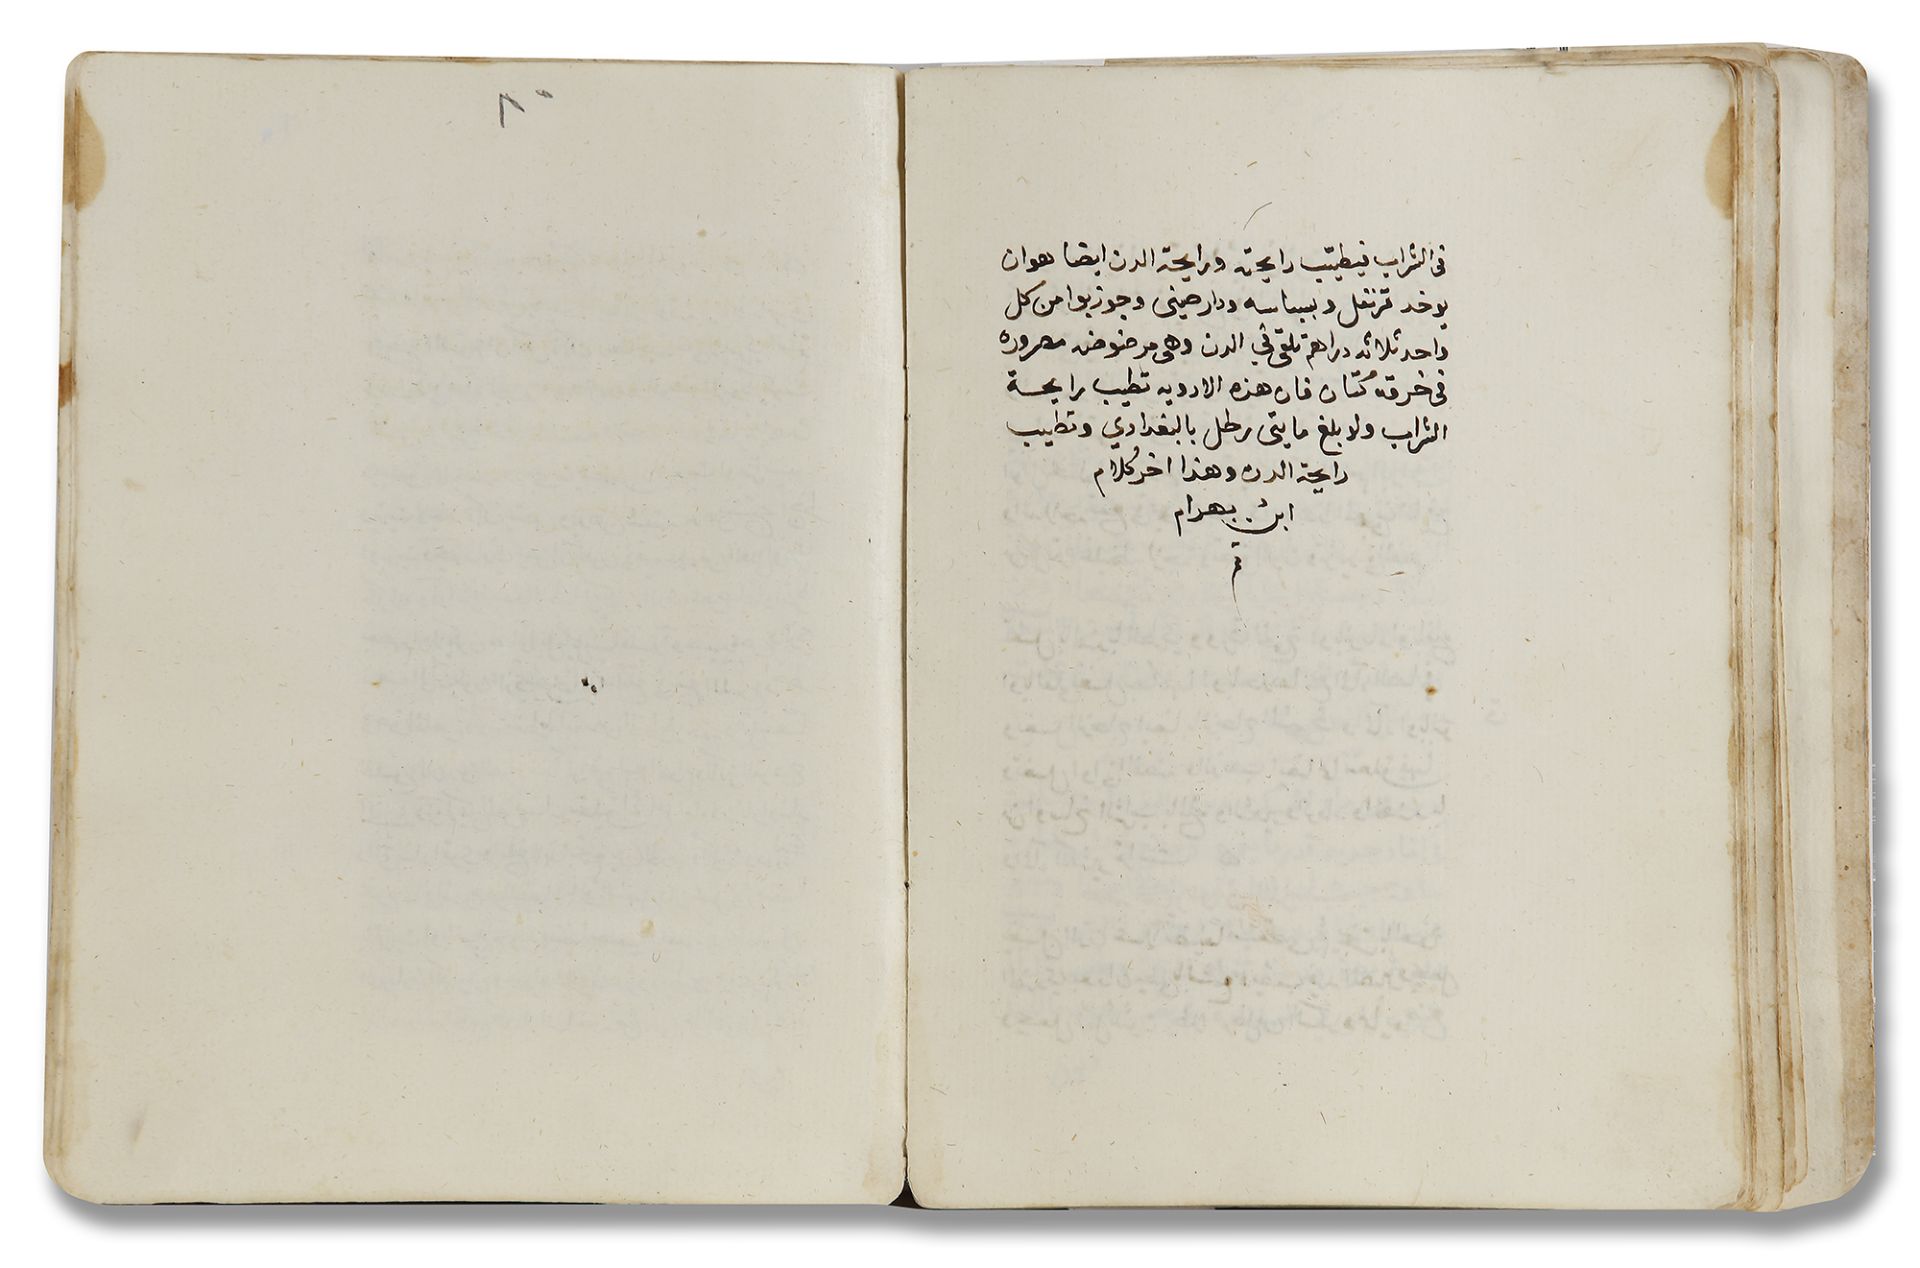 في الشراب فيطيّب رايحته ورايحة الدن ايضا هوان
يوخد قرنفل وبسباسه ودارصيني وجوزبوا من كل
واحد ثلاثه دراهم تلقى في الدن وهي مرضوضه مصروره
في خرقه كتان فان هذه الادويه تطيب رايحة
الشراب ولا بلغ مايتى رطل بالبغدادي وتطيب
رايحة الدن وهذا اخر كلام
ابن بهرام
تم
٨٠